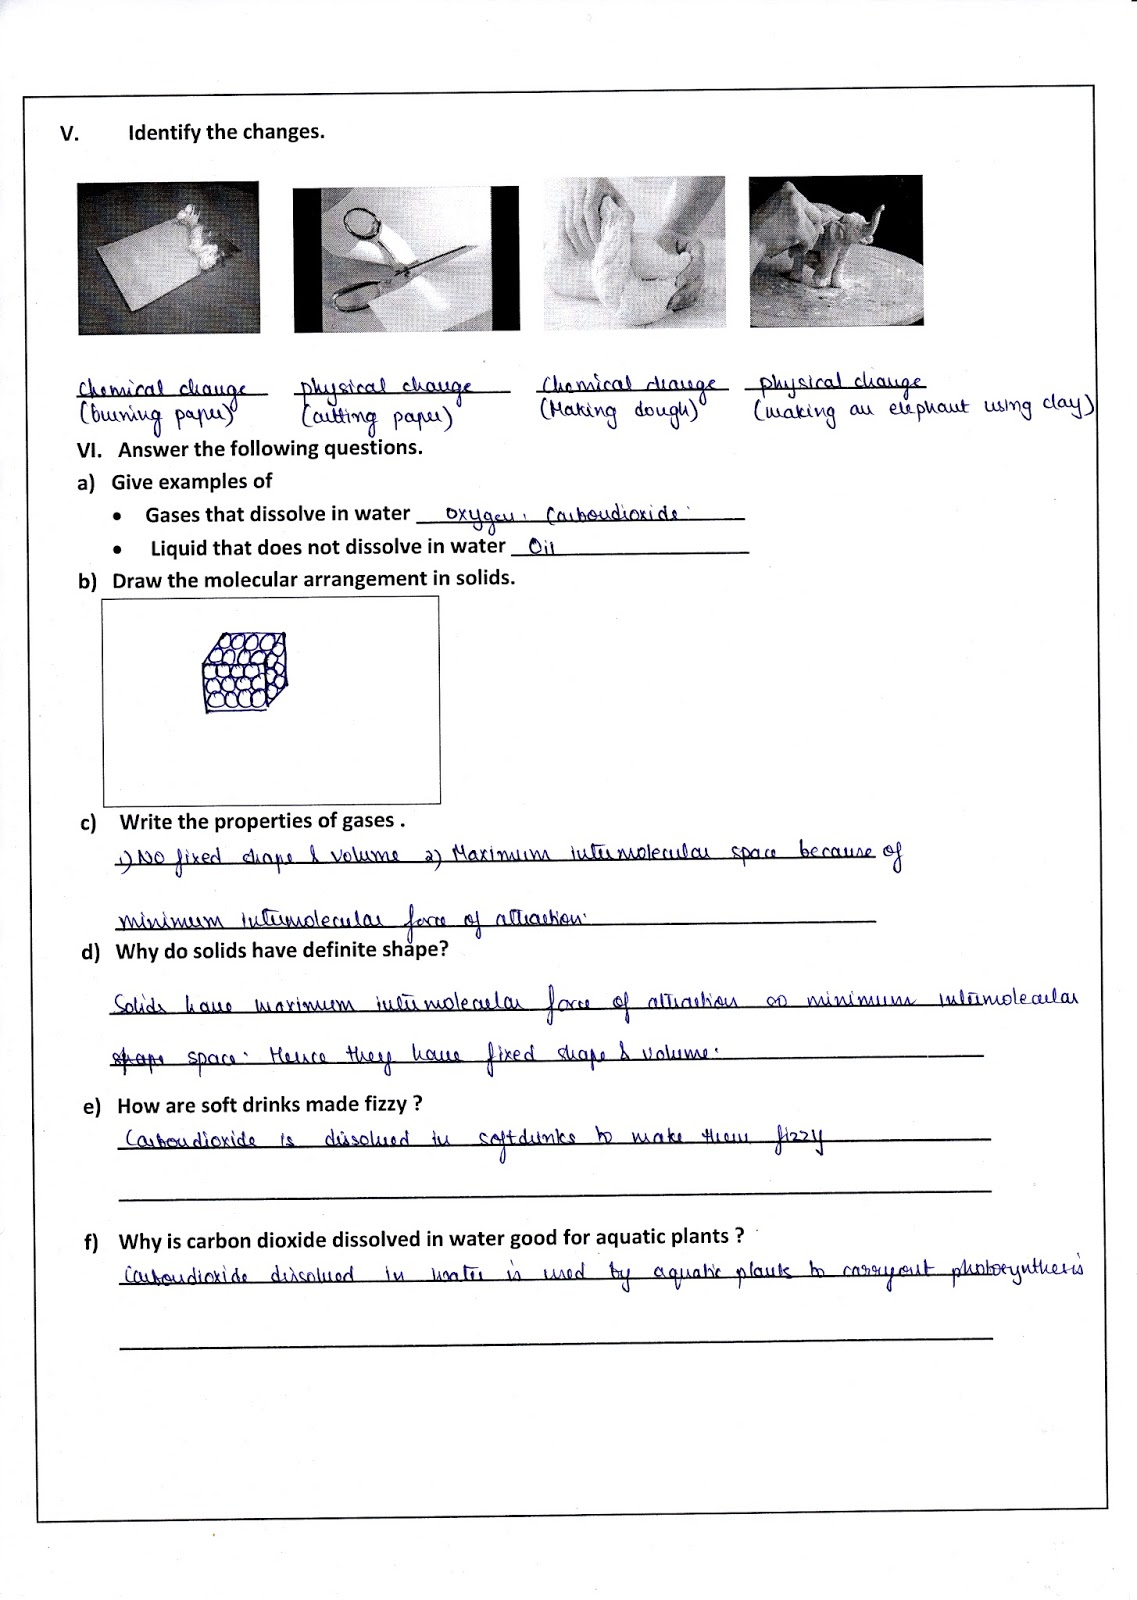 V. Identify the changes.
Chemical change physical change Chemical change physical change
(burning paper) (cutting paper) (Making dough) (making an elephant using clay)
VI. Answer the following questions.
a) Give examples of
• Gases that dissolve in water oxygen, Carbondioxide.
• Liquid that does not dissolve in water Oil
b) Draw the molecular arrangement in solids.
c) Write the properties of gases .
1) No fixed shape & volume 2) Maximum intermolecular space because of
minimum intermolecular force of attraction.
d) Why do solids have definite shape?
Solids have maximum intermolecular force of attraction so minimum intermolecular
shape space. Hence they have fixed shape & volume.
e) How are soft drinks made fizzy ?
Carbondioxide is dissolved in softdrinks to make them fizzy
f) Why is carbon dioxide dissolved in water good for aquatic plants ?
Carbondioxide dissolved in water is used by aquatic plants to carryout photosynthesis